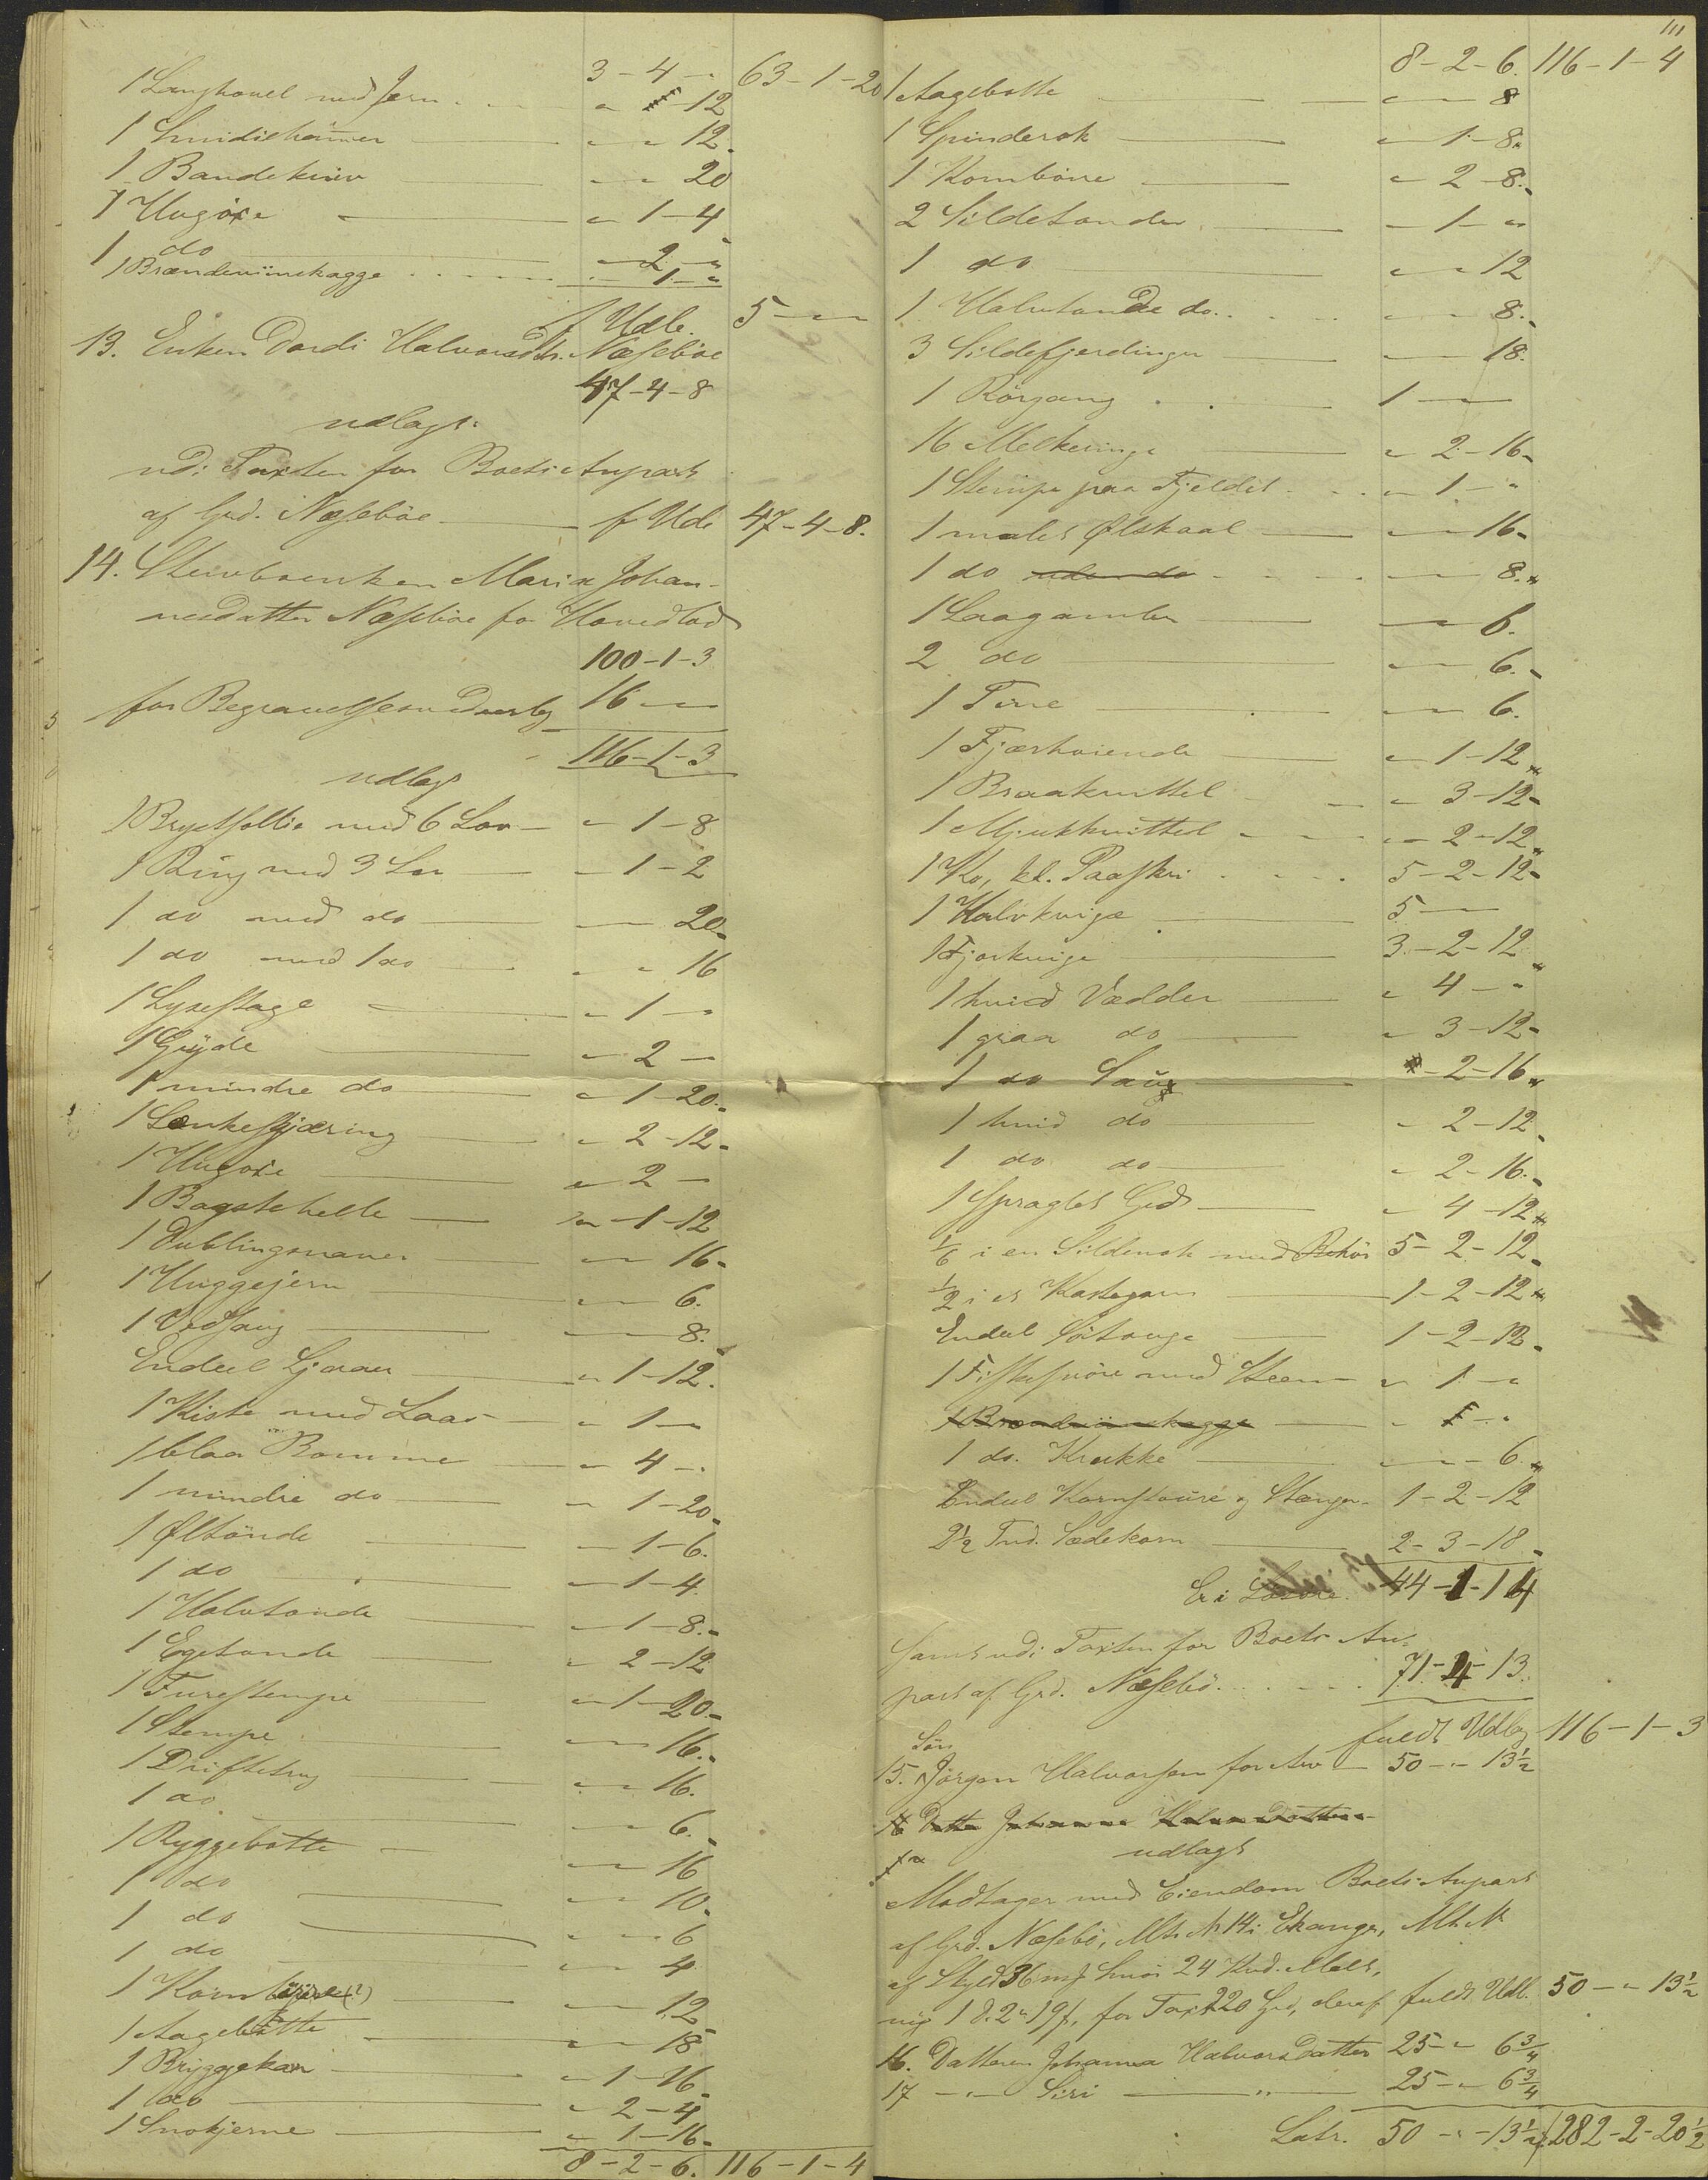 3-4-" 63-1-20
1 Langhovel med Jern " -12
1 Smidiehammer " " 12.
1 Bandekniv " " 20
1 Hugöxe " 1-4
1 do " 2-"
1 Brændeviinskagge " 1-"
f Udl. 5-"-"
13. Enken Dordi Halvorsdtr. Næsebøe
47-4-8
udlagt
udi Taxten for Boets Anpart
af Grd. Næsebøe f Udl 47-4-8.
14. Stervboenken Maria Johan-
nesdatter Næsebøe for Hovedlod
100-1-3
for Begravelsesudverlag 16-"-"
116-1-3
udlagt
1 Brystsøllie med 6 Løv " 1-8
1 Ring med 3 Løv " 1-2
1 do med do " " 20.
1 do med 1 do " " 16
1 Lysestage " 1-"
1 Gryde " 2-"
1 mindre do " 1-20.
1 Lænkeskjæring " 2-12.
1 Hugøxe " 2-"
1 Bagstehelle " 1-12
1 Dublingsnaver " " 16.
1 Huggejern " " 6.
1 Vedsaug " " 8.
Endeel Ljaaer " 1-12.
1 Kiste med Laas " 1-"
1 blaa Bomme " 4-"
1 mindre do " 1-20.
1 Øltønde " 1-6.
1 do " 1-4.
1 Halvtønde " 1-8.
1 Egetønde " 2-12
1 Furestempe " 1-20.
1 Stempe " " 16.
1 Driftetrug " " 16.
1 do " " 6.
1 Ryggebøtte " " 16
1 do " " 10.
1 do " " 6
1 do " " 4
1 Korn (?) " " 12
1 Aagebøtte " " 18
1 Bryggekar " 1-16.
1 do " 2-4
1 Smøkjerne " 1-16.
8-2-6. 116-1-4
111
8-2-6. 116-1-4
1 Aagebøtte " " 8
1 Spinderok " 1-8.
1 Kornbøre " 2-8.
2 Sildetønder " 1-"
1 do " " 12
1 Halvtønde do. " " 8.
3 Sildefjerdinger " " 18.
1 Rörgang 1-"-"
16 Melkeringe " 2-16.
1 Stempe paa Fjeldet " 1-"
1 malet Ølskaal " " 16.
1 do uden do " " 8.
1 Laagamber " " 6.
2 do " " 6.
1 Tine " " 6.
1 Fjærhøiende " 1-12.
1 Braakvittel " 3-12.
1 Mjukkvittel " 2-12.
1 Ko, kl. Paaskri 5-2-12.
1 Kalvkvige 5-"-"
1 Fjorkvige 3-2-12.
1 hvid Vædder " 4-"
1 graa do " 3-12.
1 do Sau " 2-16.
1 hvid do " 2-12.
1 do do " 2-16.
1 spraglet Ged " 4-12.
1/6 i en Sildenot med Behör 5-2-12.
1/2 i et Kastegarn 1-2-12.
Endeel Sötauge 1-2-12.
1 Fiskesnöre med Steen " 1-"
1 Brændeviinskagge " -"
1 do. Krukke " " 6.
Endeel Kornstaure og Stænger 1-2-12
2½ Tnd. Sædekorn 2-3-18.
Er i Løsøre. 44-1-14
Samt udi Taxten for Boets An-
part af Grd. Næsebö 71-4-13.
fuldt Udlag 116-1-3
Sön
15. Jörgen Halvorsen for Arv 50-"-13½
16 Datter Johanna Halvorsdatter
udlagt
Modtager med Eiendom Boets Anpart
af Grd. Næsebö, Mtr. N 14 i Ekanger, Mt. N
af Skyld 36 mf Smör 24 Knd. Malt,
ny 1 d. 2 " 19 f, for Taxt 220 Grd, deraf fuldt Udl. 50-"-13½
16. Datteren Johanna Halvorsdatter 25-"-6¾
17 -"- Siri -"- 25-"-6¾
Latr. 50-"-13½ 282-2-20½